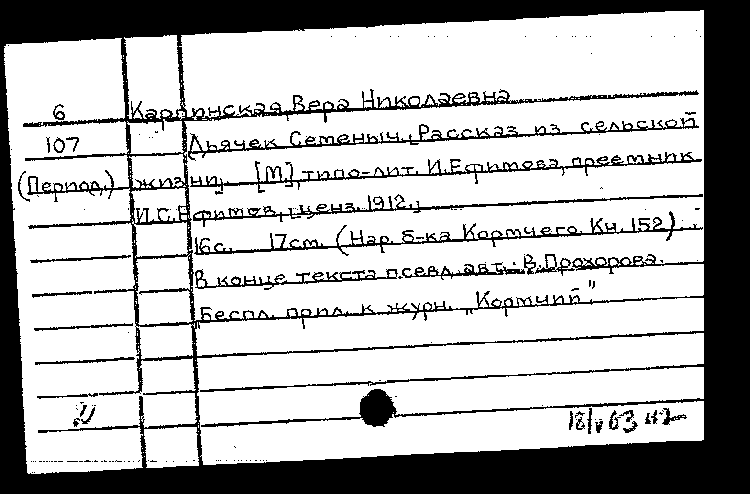 6 Карпинская, Вера Николаевна
107 Дьячек Семеныч. [Рассказ из сельской
(Период.) жизни]. [М.], типо-лит. И.Ефимова, преемник
И.С.Ефимов, [ценз. 1912.]
16с. 17см. (Нар. б-ка Кормчего. Кн. 152).
В конце текста псевд. авт.: В.Прохорова.
Беспл. прил. к журн. „Кормчий".
18/V 63